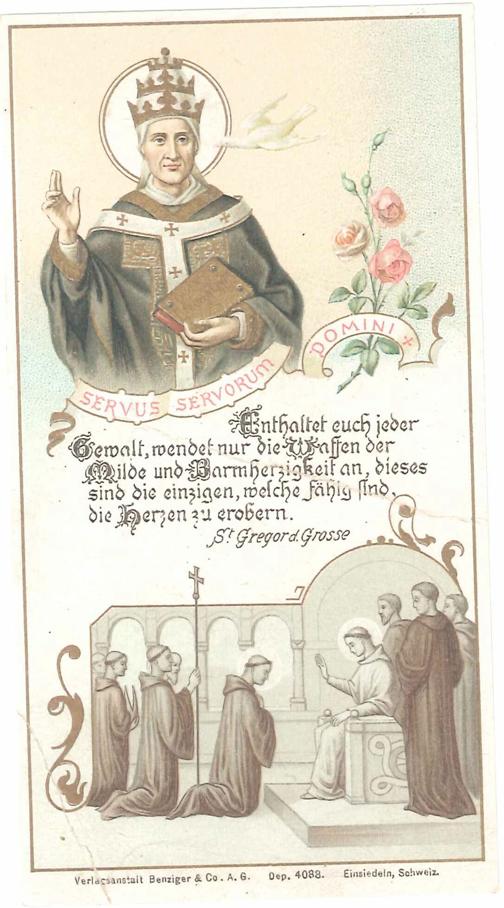 SERVUS SERVORUM DOMINI +
Enthaltet euch jeder
Gewalt, wendet nur die Waffen der
Milde und Barmherzigkeit an, dieses
sind die einzigen, welche fähig sind,
die Herzen zu erobern.
St Gregor d. Grosse
Verlagsanstalt Benziger & Co. A. G. Dep. 4088. Einsiedeln, Schweiz.